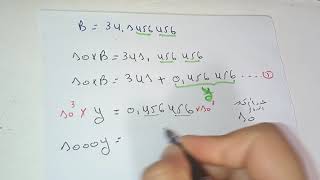 B = 34,1 456 456
10×B = 341, 456 456
10×B = 341 + 0,456 456 ... ①
y
10³ × y = 0,456 456 ×10³
10
1000y =